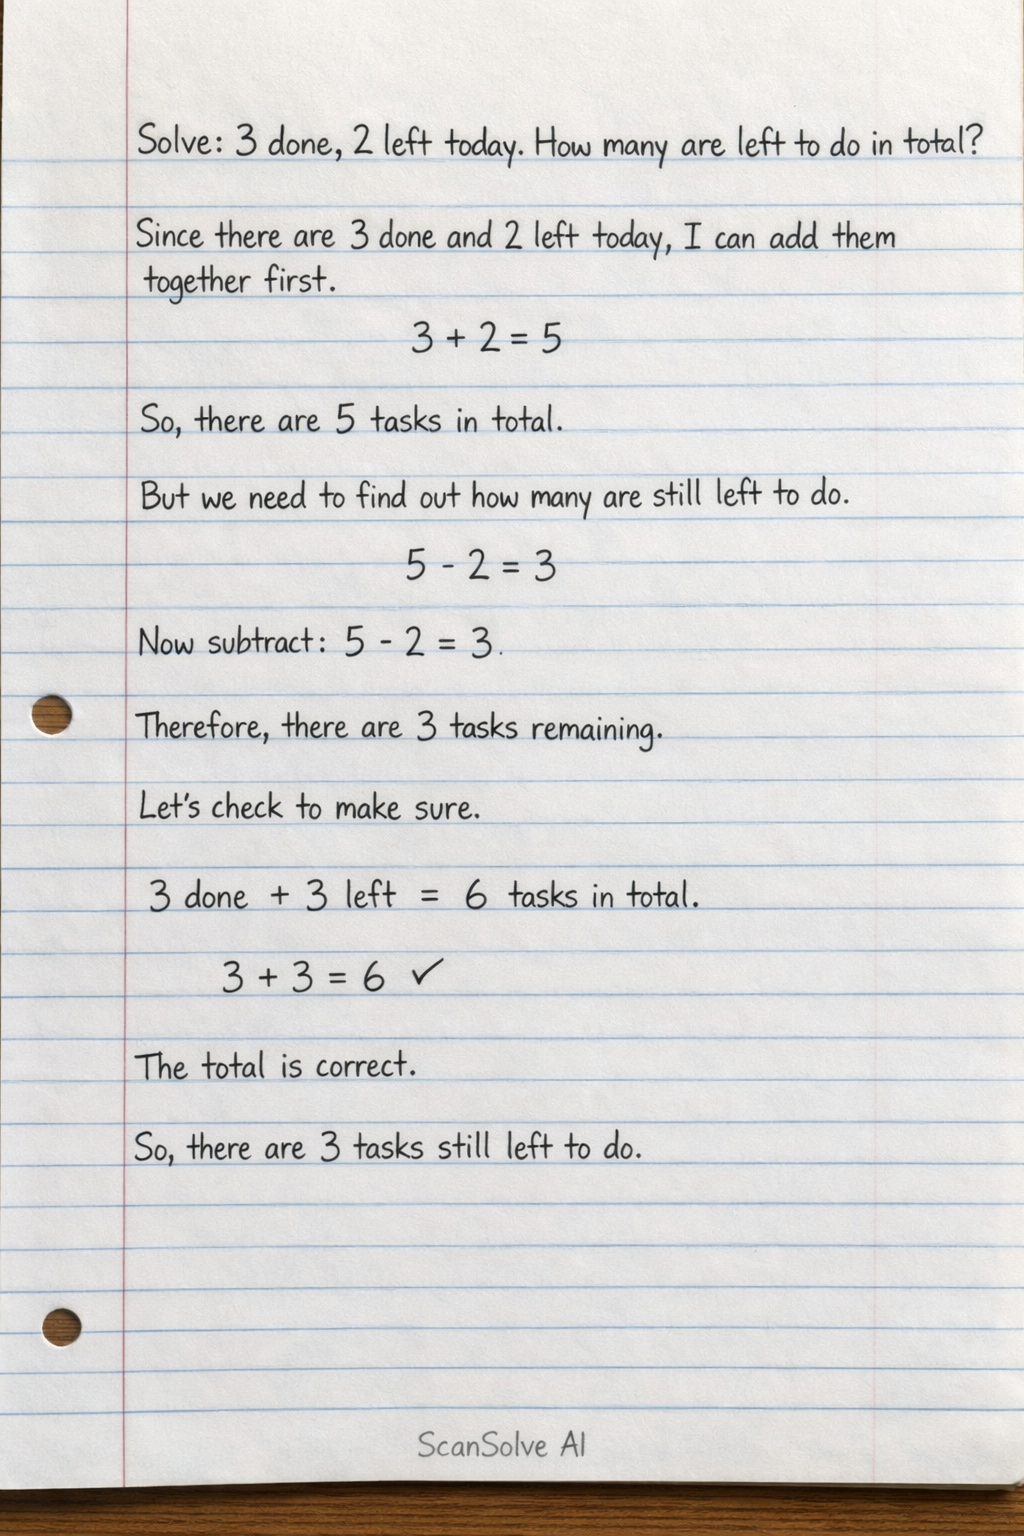 Solve: 3 done, 2 left today. How many are left to do in total?
Since there are 3 done and 2 left today, I can add them
together first.
3 + 2 = 5
So, there are 5 tasks in total.
But we need to find out how many are still left to do.
5 - 2 = 3
Now subtract: 5 - 2 = 3.
Therefore, there are 3 tasks remaining.
Let's check to make sure.
3 done + 3 left = 6 tasks in total.
3 + 3 = 6 ✓
The total is correct.
So, there are 3 tasks still left to do.
ScanSolve AI